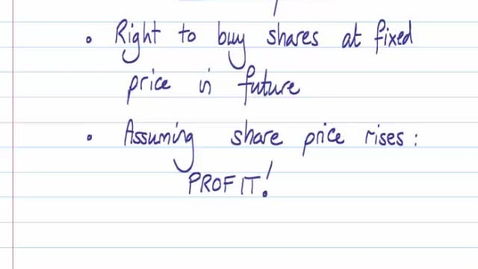 • Right to buy shares at fixed
price in future
• Assuming share price rises:
PROFIT!